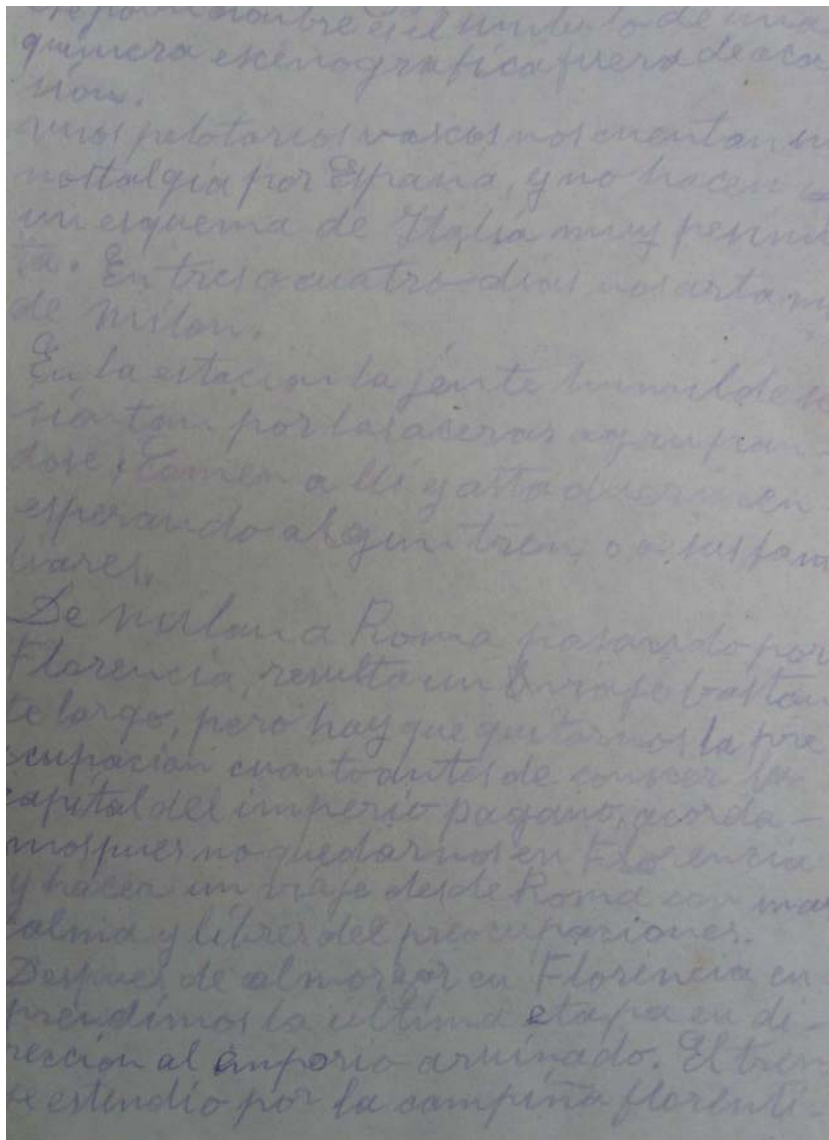 es el símbolo de una
quimera escenografica fuera de oca
sión.
unos pelotarios vascos nos cuentan su
nostalgia por España, y no hacen
un esquema de Italia muy pesimis
ta. En tres o cuatro dias nos artamos
de Milan.
En la estacion la jente humilde se
sientan por las aceras agrupan-
dose, Comen alli y asta duermen
esperando algun tren, o a sus fami
liares.
De milan a Roma pasando por
Florencia, resulta un viaje bastan
te largo, pero hay que quitarnos la pre
ocupacion cuanto antes de conocer la
capital del imperio pagano, acorda-
mos pues no quedarnos en Florencia
y hacer un viaje desde Roma con mas
calma y libres del preocupaciones.
Despues de almorzar en Florencia en
prendimos la ultima etapa en di-
reccion al emporio arruinado. El tren
se estendio por la campiña florenti-